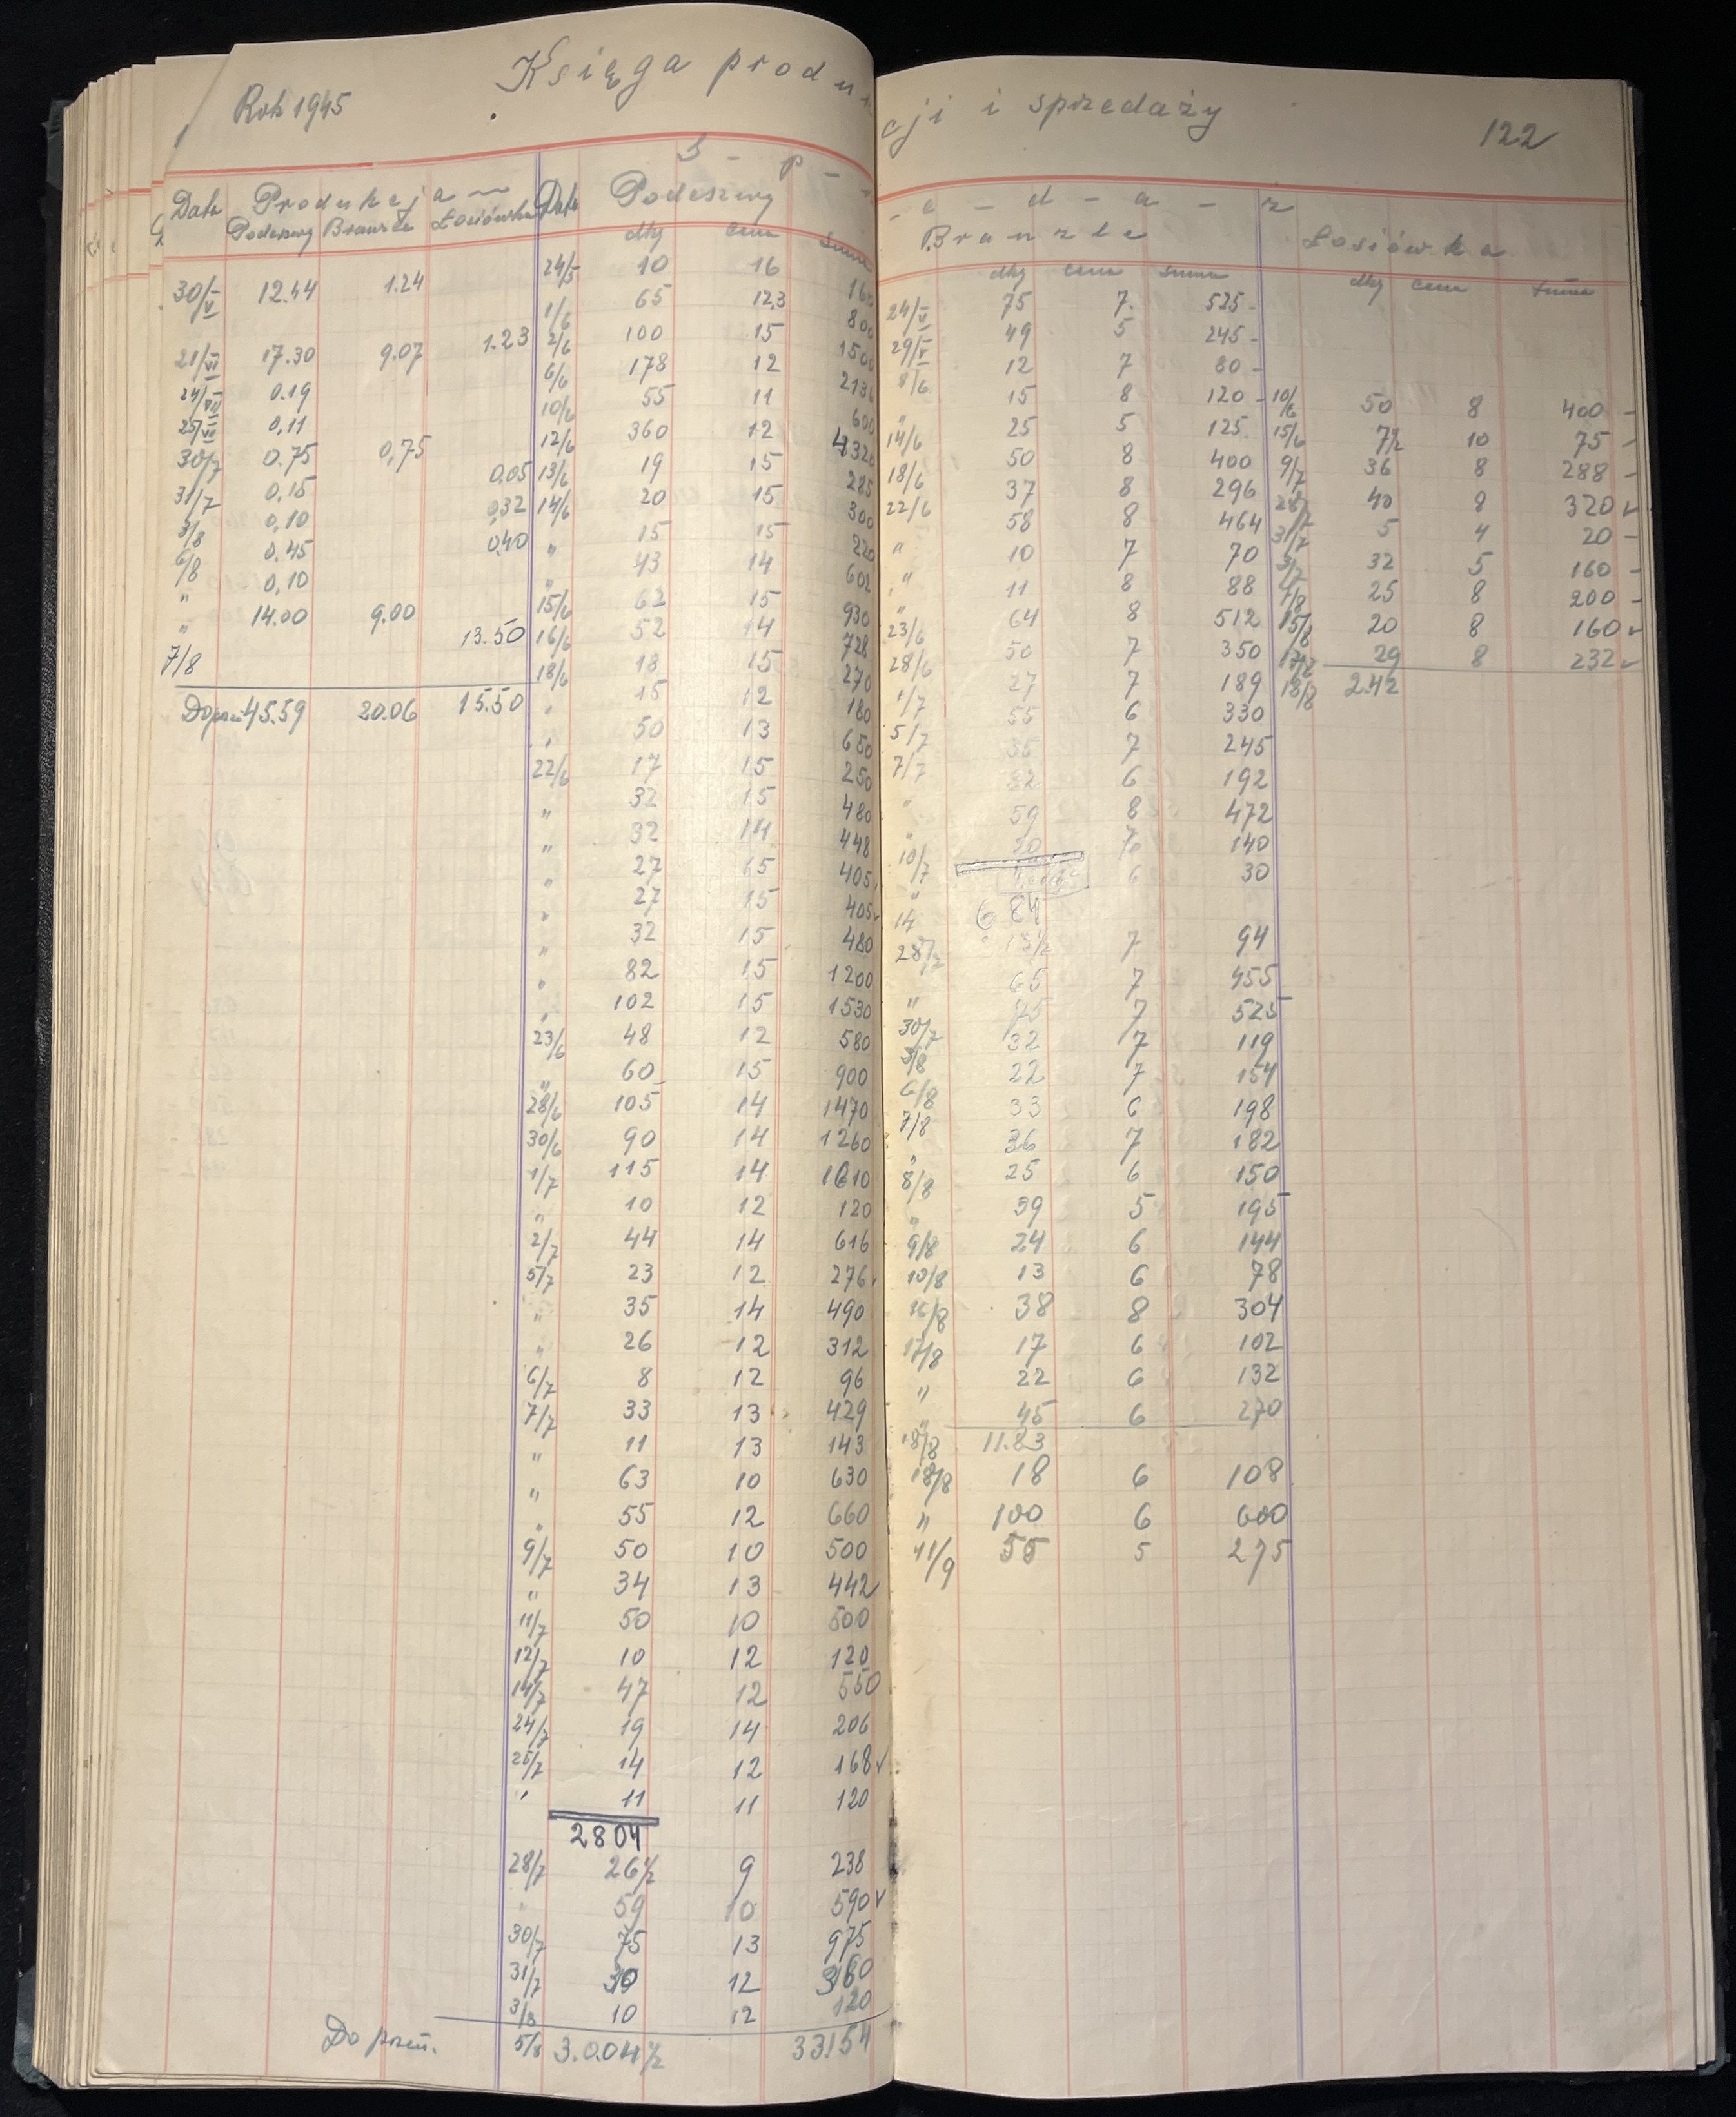 Rok 1945 Księga produkcji i sprzedaży 122
S - p - r - e - d - a - z
Data Produkcja Data Podeszwy Branzle Łosiówka
Podeszwy Branzle Łosiówka dkg cena suma dkg cena suma dkg cena suma
30/V 12.44 1.24
21/VI 17.30 9.07 1.23
24/VII 0.19
25/VII 0,11
30/7 0.75 0,75
31/7 0,15 0,05
3/8 0,10 0,32
6/8 0.45 0,40
" 0,10
" 14.00 9.00
7/8 13.50
Do przen 45.59 20.06 15.50
24/5 10 16 160
1/6 65 12,3 800
2/6 100 15 1500
6/6 178 12 2136
10/6 55 11 600
12/6 360 12 4320
13/6 19 15 285
14/6 20 15 300
" 15 15 220
" 43 14 602
15/6 62 15 930
16/6 52 14 728
18/6 18 15 270
" 15 12 180
" 50 13 650
22/6 17 15 250
" 32 15 480
" 32 14 448
" 27 15 405
" 27 15 405
" 32 15 480
" 82 15 1200
" 102 15 1530
23/6 48 12 580
" 60 15 900
28/6 105 14 1470
30/6 90 14 1260
1/7 115 14 1610
" 10 12 120
2/7 44 14 616
5/7 23 12 276
" 35 14 490
" 26 12 312
6/7 8 12 96
7/7 33 13 429
" 11 13 143
" 63 10 630
" 55 12 660
9/7 50 10 500
" 34 13 442
11/7 50 10 500
12/7 10 12 120
14/7 47 12 550
24/7 19 14 206
25/7 14 12 168 ✓
" 11 11 120
2804
28/7 26 1/2 9 238
" 59 10 590 ✓
30/7 75 13 975
31/7 30 12 360
3/8 10 12 120
Do przen. 5/8 3.0.04 1/2 33154
24/V 75 7. 525 -
29/V 49 5 245 -
8/6 12 7 80 -
" 15 8 120 -
14/6 25 5 125
18/6 50 8 400
22/6 37 8 296
58 8 464
" 10 7 70
" 11 8 88
" 64 8 512
23/6 50 7 350
28/6 27 7 189
1/7 55 6 330
5/7 35 7 245
7/7 32 6 192
" 59 8 472
" 20 7 140
10/7 6 30
" 6 84
14
28/7 13 1/2 7 94
65 7 455
" 75 7 525
30/7 32 7 119
3/8 22 7 154
6/8 33 6 198
7/8 26 7 182
" 25 6 150
8/8 39 5 195
" 24 6 144
9/8 13 6 78
10/8 38 8 304
16/8 17 6 102
17/8 22 6 132
" 45 6 270
" 11.83
18/8
18/8 18 6 108
" 100 6 600
11/9 55 5 275
10/6 50 8 400 -
15/6 7 1/2 10 75 -
9/7 36 8 288 -
28/7 40 8 320 ✓
31/7 5 4 20 -
3/7 32 5 160 -
7/8 25 8 200 -
15/8 20 8 160 ✓
29 8 232 ✓
18/8 2.42